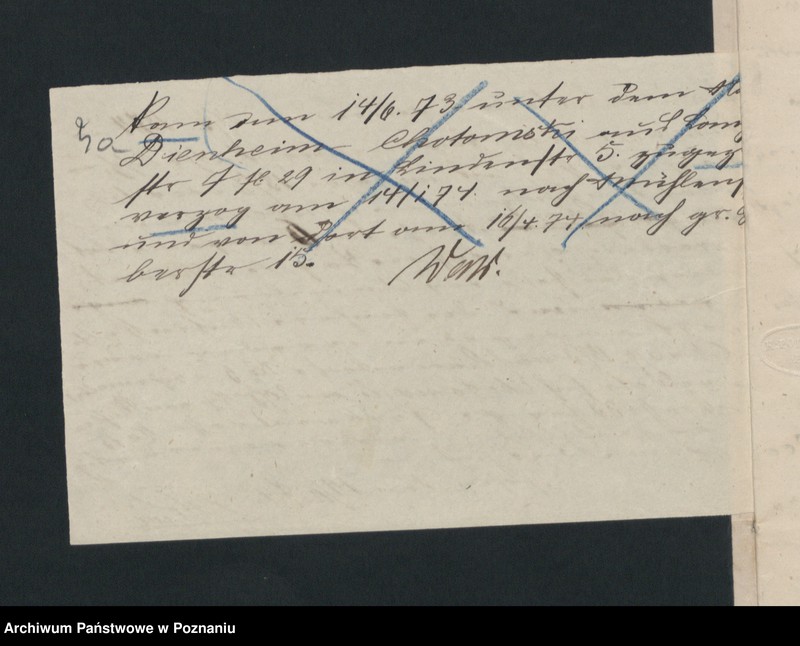 3a
kam am 14/6. 73. unter dem
Dienheim Chotomski aus
str 7 29 in Lindenstr 5.
verzog am 14/1 74. nach Mühlens
und von dort am 16/4. 74 nach gr.
berstr 15.
Archiwum Państwowe w Poznaniu